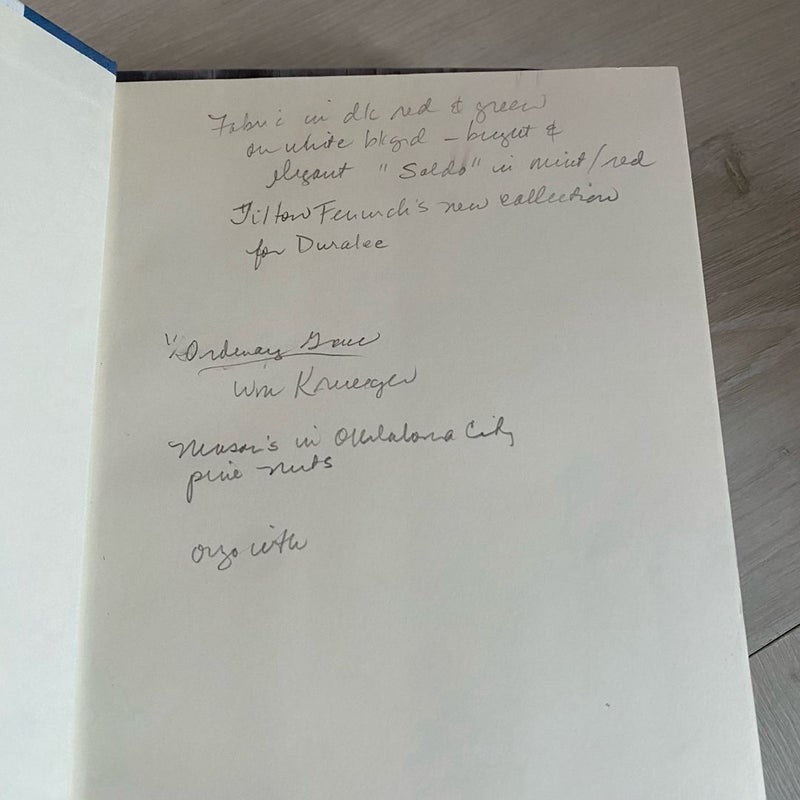 Fabric in dk red & green
on white bkgrd – bright &
elegant "Saldo" in mint/red
Tilton Fenwick's new collection
for Duralee
"Ordinary Grace
Wm Krueger
Mason's in Oklahoma City
pine nuts
orzo with